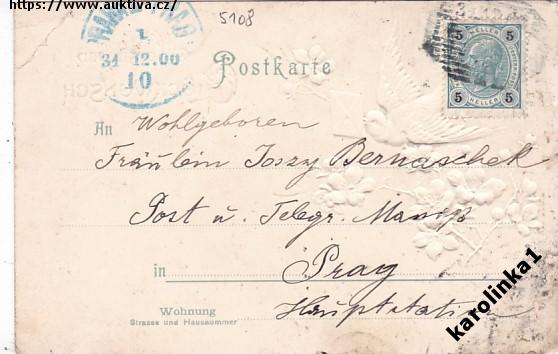 https://www.auktiva.cz/
5108
1
31 12.00
10
Postkarte
5 HELLER 5
5 HELLER 5
An Wohlgeboren
Fräulein Joszy Bernaschek
Post u. Telegr.
in Prag
Wohnung
Strasse und Hausnummer
karolinka1